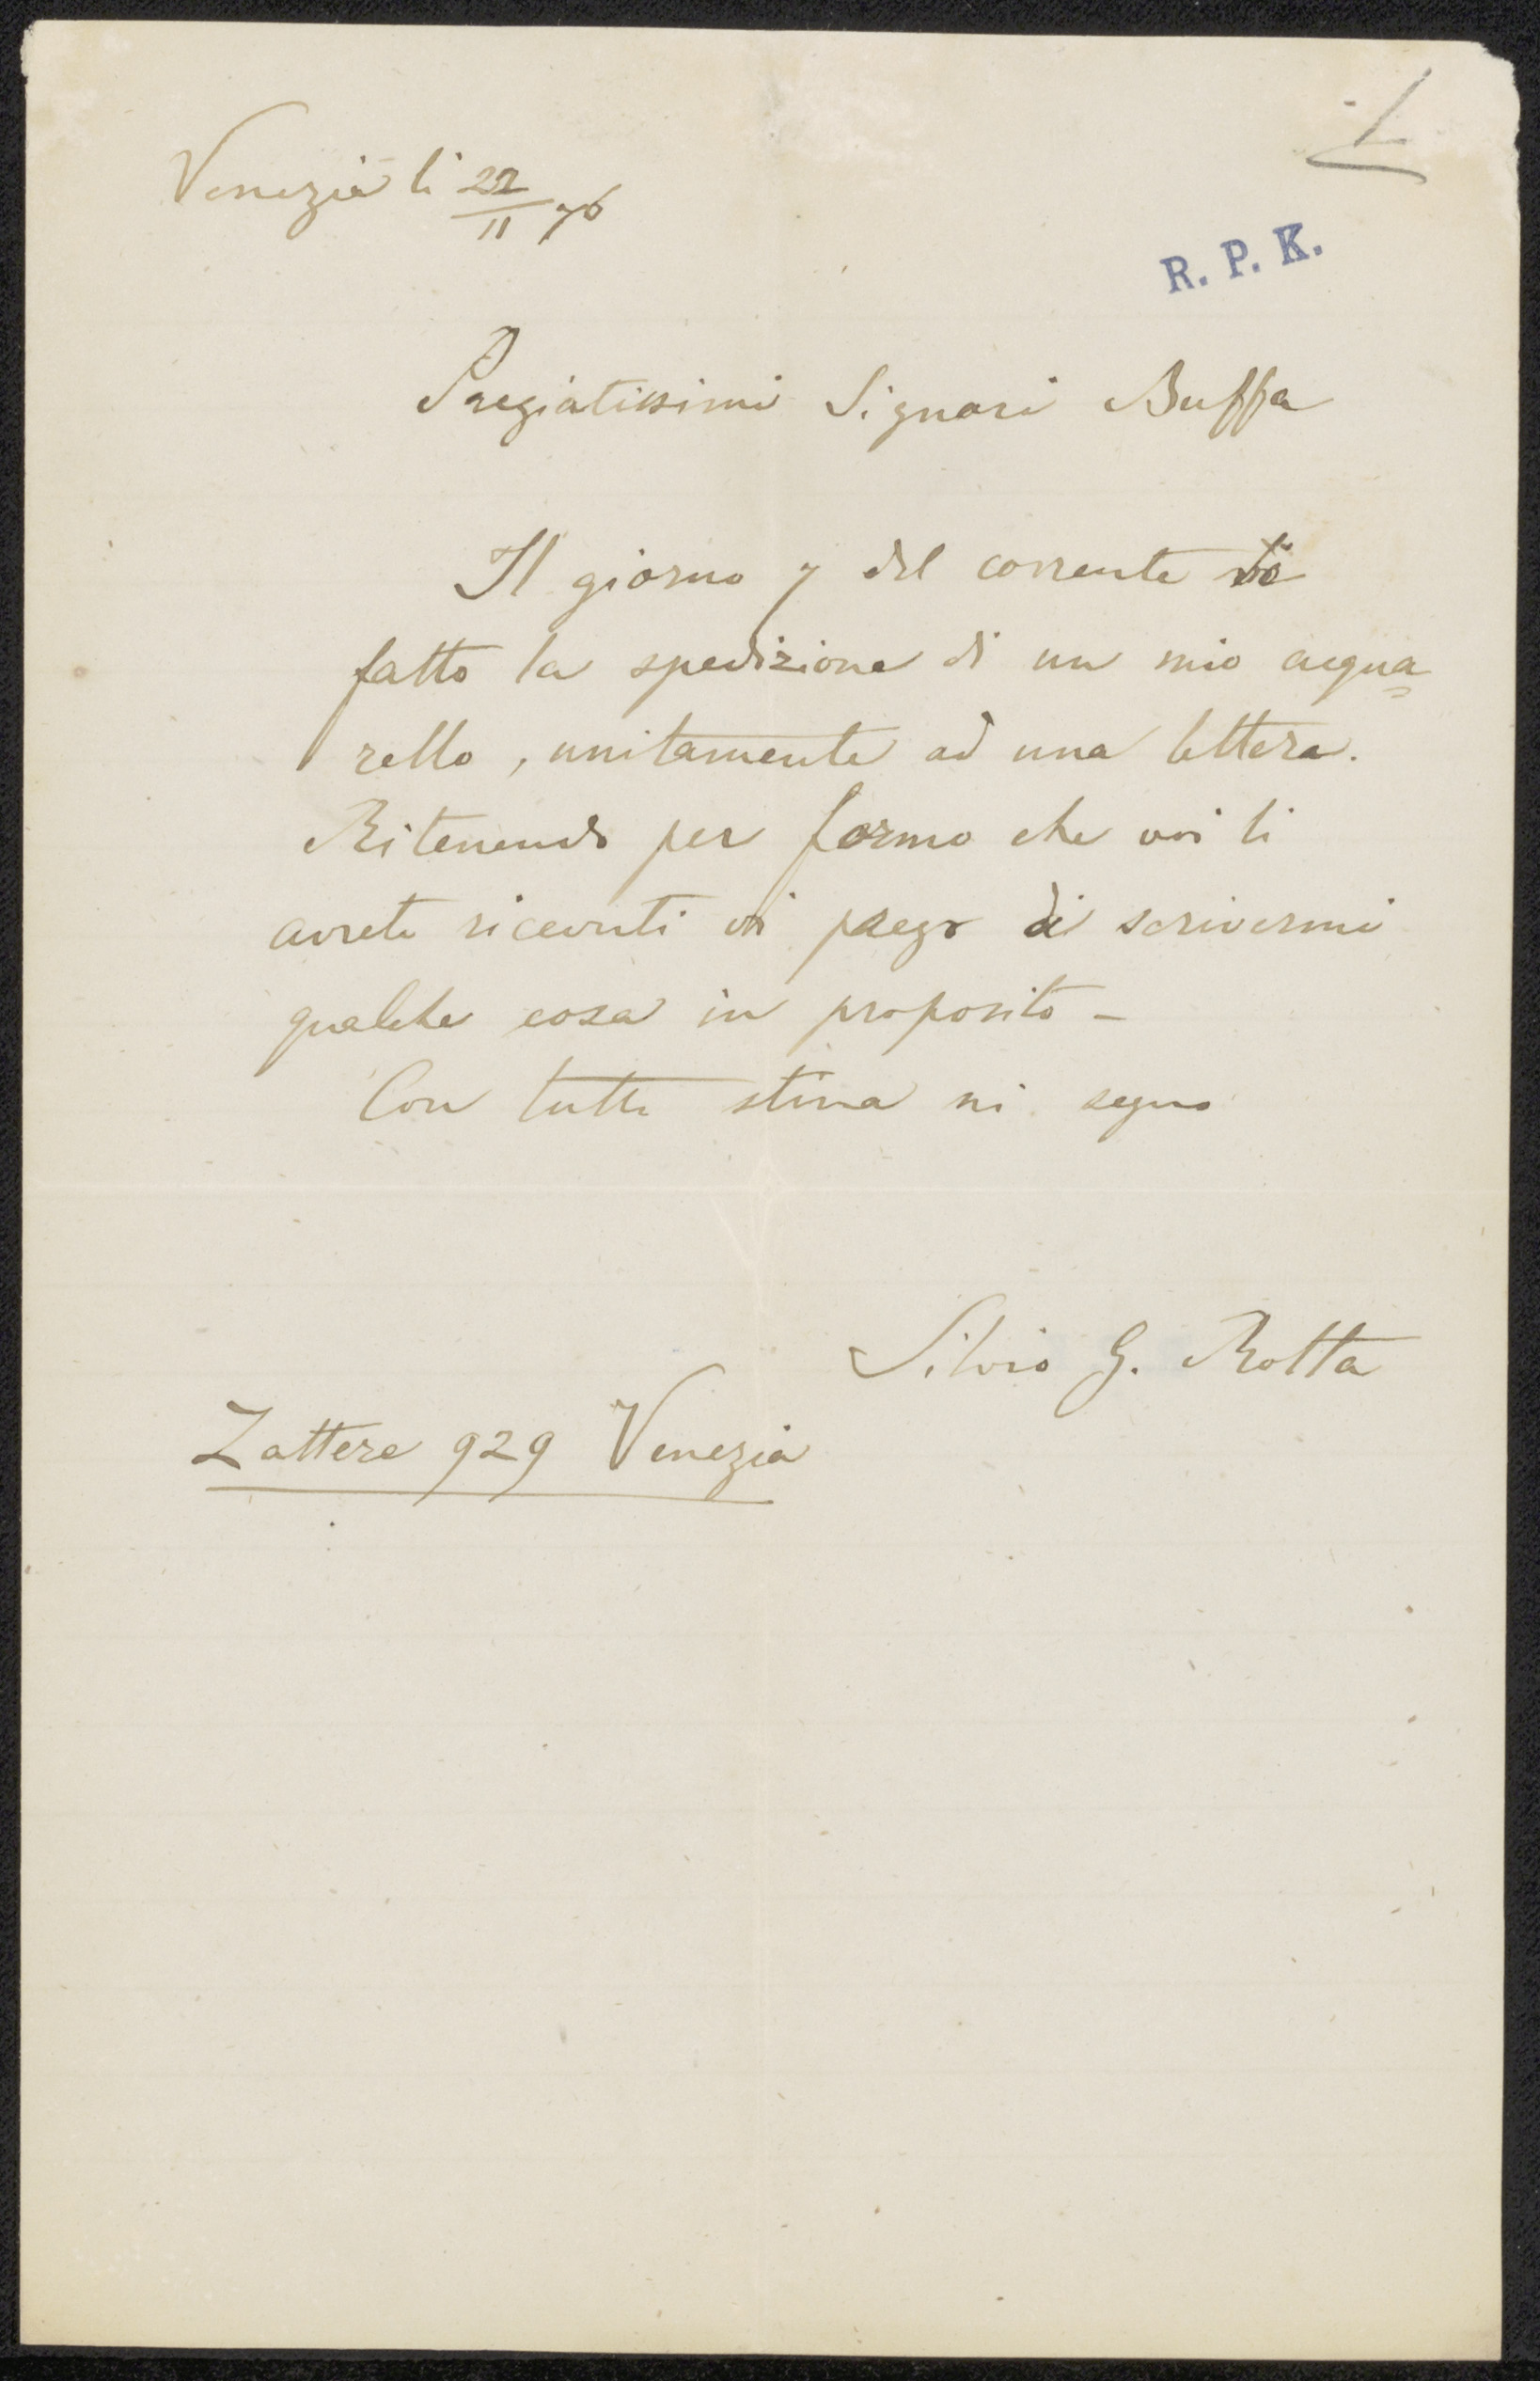 Venezia li 22/11 76
R. P. K.
Pregiatissimi Signori Buffa
Il giorno 7 del corrente
fatto la spedizione di un mio acqua=
rello, unitamente ad una lettera.
Ritenendo per fermo che voi li
avrete ricevuti vi prego di scrivermi
qualche cosa in proposito –
Con tutta stima mi segno
Silvio G. Rotta
Zattere 929 Venezia